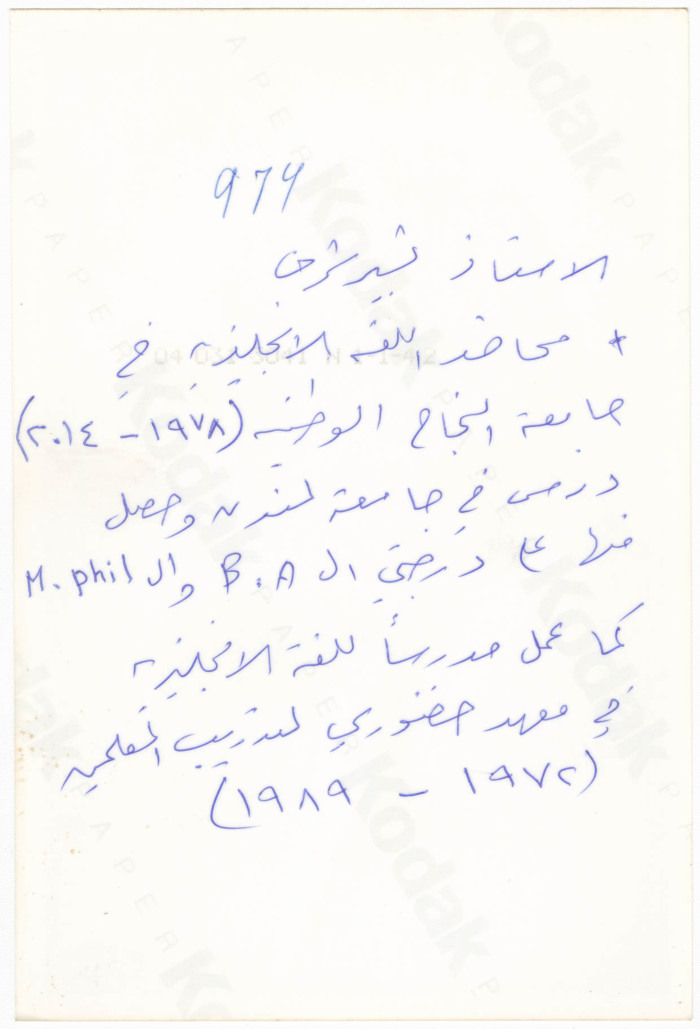 974
الاستاذ بشير شرف
* محاضر اللغة الانجليزية في
جامعة النجاح الوطنية (١٩٧٨ - ٢٠١٤)
درس في جامعة لندن وحصل
منها على درجتي ال B.A وال M.phil
كما عمل مدرساً للغة الانجليزية
في معهد خضوري لتدريب المعلمين
(١٩٧٢ - ١٩٨٩)
04 031 3041 N 1-1-4 2
Kodak
PAPER